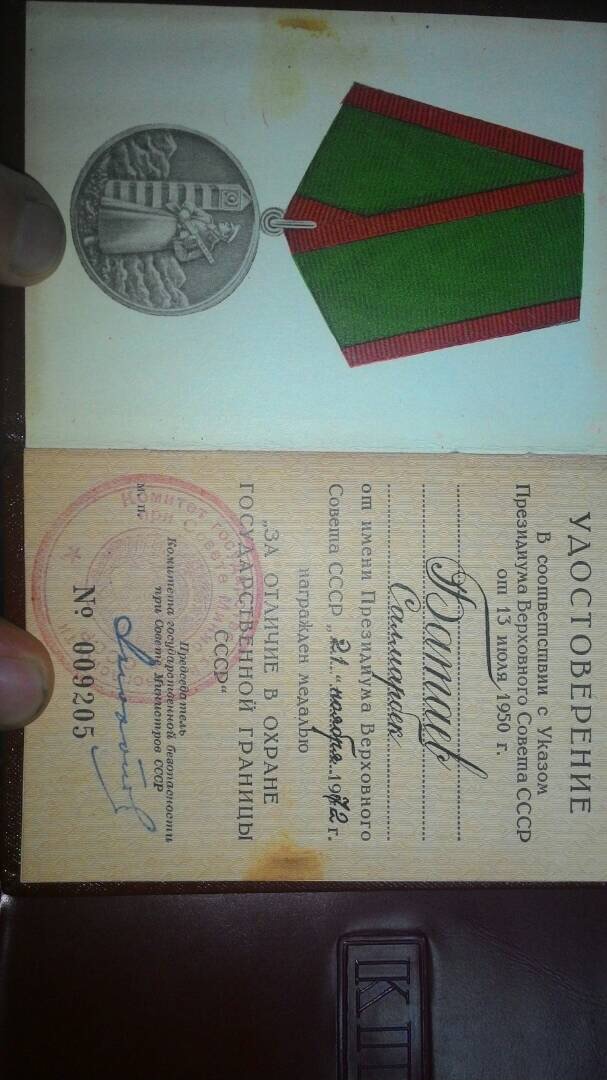 УДОСТОВЕРЕНИЕ
В соответствии с Указом
Президиума Верховного Совета СССР
от 13 июля 1950 г.
Батаев
Салмарбек
от имени Президиума Верховного
Совета СССР „21“ ноября 1972 г.
награжден медалью
„ЗА ОТЛИЧИЕ В ОХРАНЕ
ГОСУДАРСТВЕННОЙ ГРАНИЦЫ
СССР“
Председатель
Комитета государственной безопасности
при Совете Министров СССР
м. п.
№ 009205
Комитет
при Совете
КП